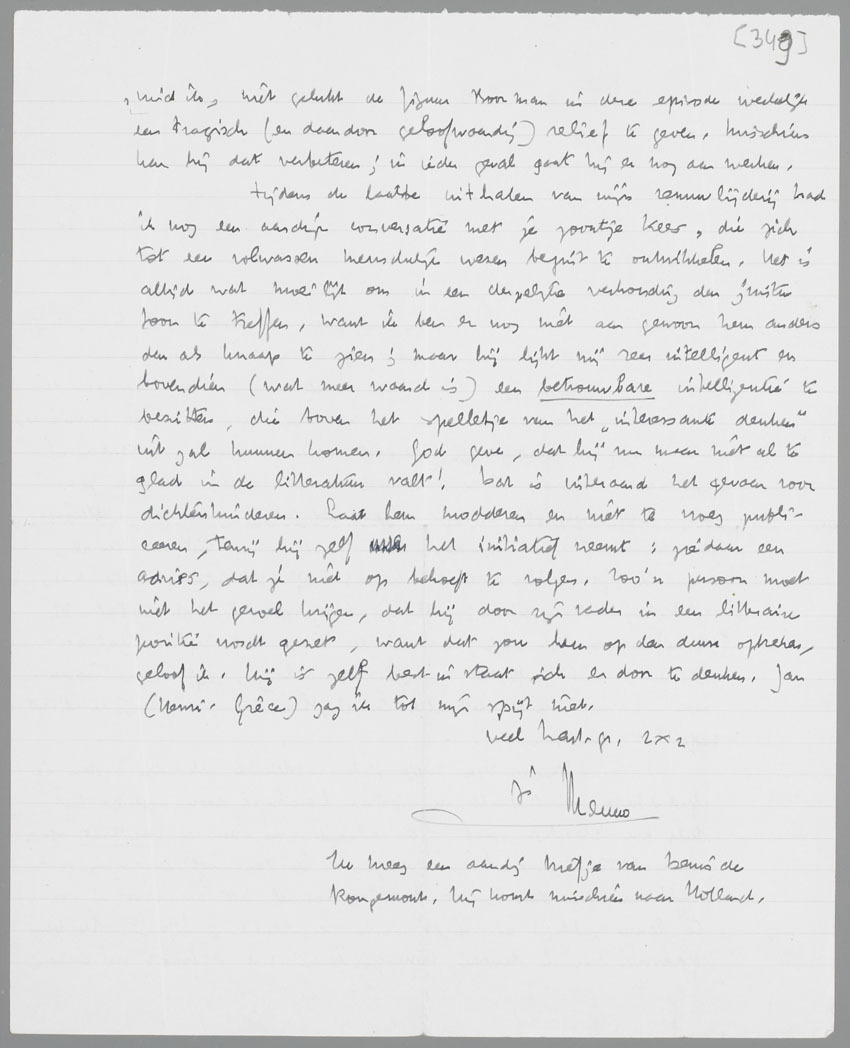 [349]
vind ik, niet gelukt de figuur Poorman in deze episode werkelijk
een tragisch (en daardoor geloofwaardig) relief te geven. Misschien
kan hij dat verbeteren; in ieder geval gaat hij er nog aan werken.
Tijdens de laatste uithalen van mijn zenuwlijderij had
ik nog een aardige conversatie met je zoontje Kees, die zich
tot een volwassen menschelijk wezen begint te ontwikkelen. Het is
altijd wat moeilijk om in een dergelijke verhouding den juisten
toon te treffen, want ik ben er nog niet aan gewoon hem anders
dan als knaap te zien; maar hij lijkt mij zeer intelligent en
bovendien (wat meer waard is) een betrouwbare intelligentie te
bezitten, die boven het spelletje van het "interessante denken"
uit zal kunnen komen. God geve, dat hij nu maar niet al te
glad in de litteratuur valt! Dat is uiteraard het gevaar voor
dichterskinderen. Laat hem modderen en niet te vroeg publi-
ceeren, tenzij hij zelf het initiatief neemt: ziedaar een
advies, dat je niet op behoeft te volgen. Zoo'n persoon moet
niet het gevoel krijgen, dat hij door zijn vader in een litteraire
positie wordt gezet, want dat zou hem op den duur opbreken,
geloof ik. Hij is zelf best in staat zich er door te denken. Jan
(Henri-Grèce) zag ik tot mijn spijt niet.
veel hart. gr. 2x2
je Menno
Ik kreeg een aardig briefje van Denis de
Rougemont. Hij komt misschien naar Holland.